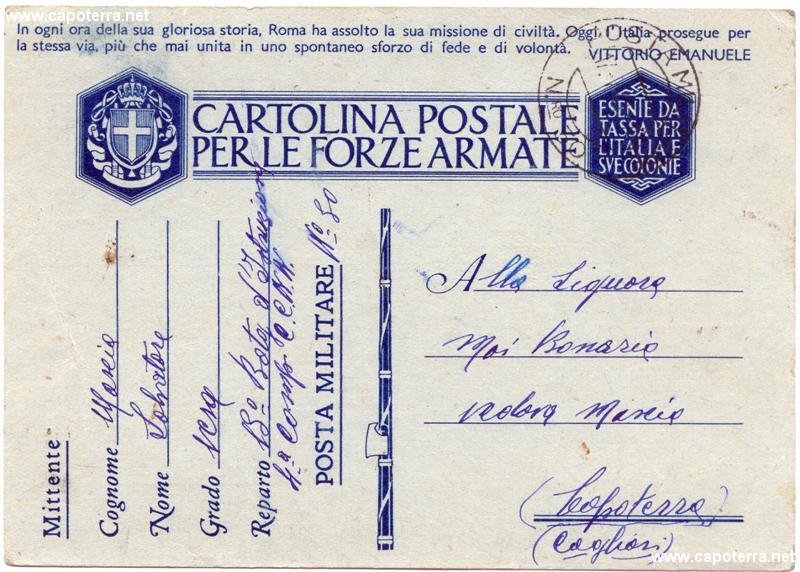 www.capoterra.net
In ogni ora della sua gloriosa storia, Roma ha assolto la sua missione di civiltà. Oggi l'Italia prosegue per
la stessa via, più che mai unita in uno spontaneo sforzo di fede e di volontà. VITTORIO EMANUELE
CARTOLINA POSTALE
PER LE FORZE ARMATE
ESENTE DA
TASSA PER
L'ITALIA E
SVE COLONIE
POSTA M
Mittente
Cognome Mascia
Nome Salvatore
Grado
Reparto 15º Batt d'Istruzione
4ª Comp CC.NN.
POSTA MILITARE Nº 50
Alla Signora
Moi Bonaria
vedova Mascia
(Capoterra)
(Cagliari)
www.capoterra.net